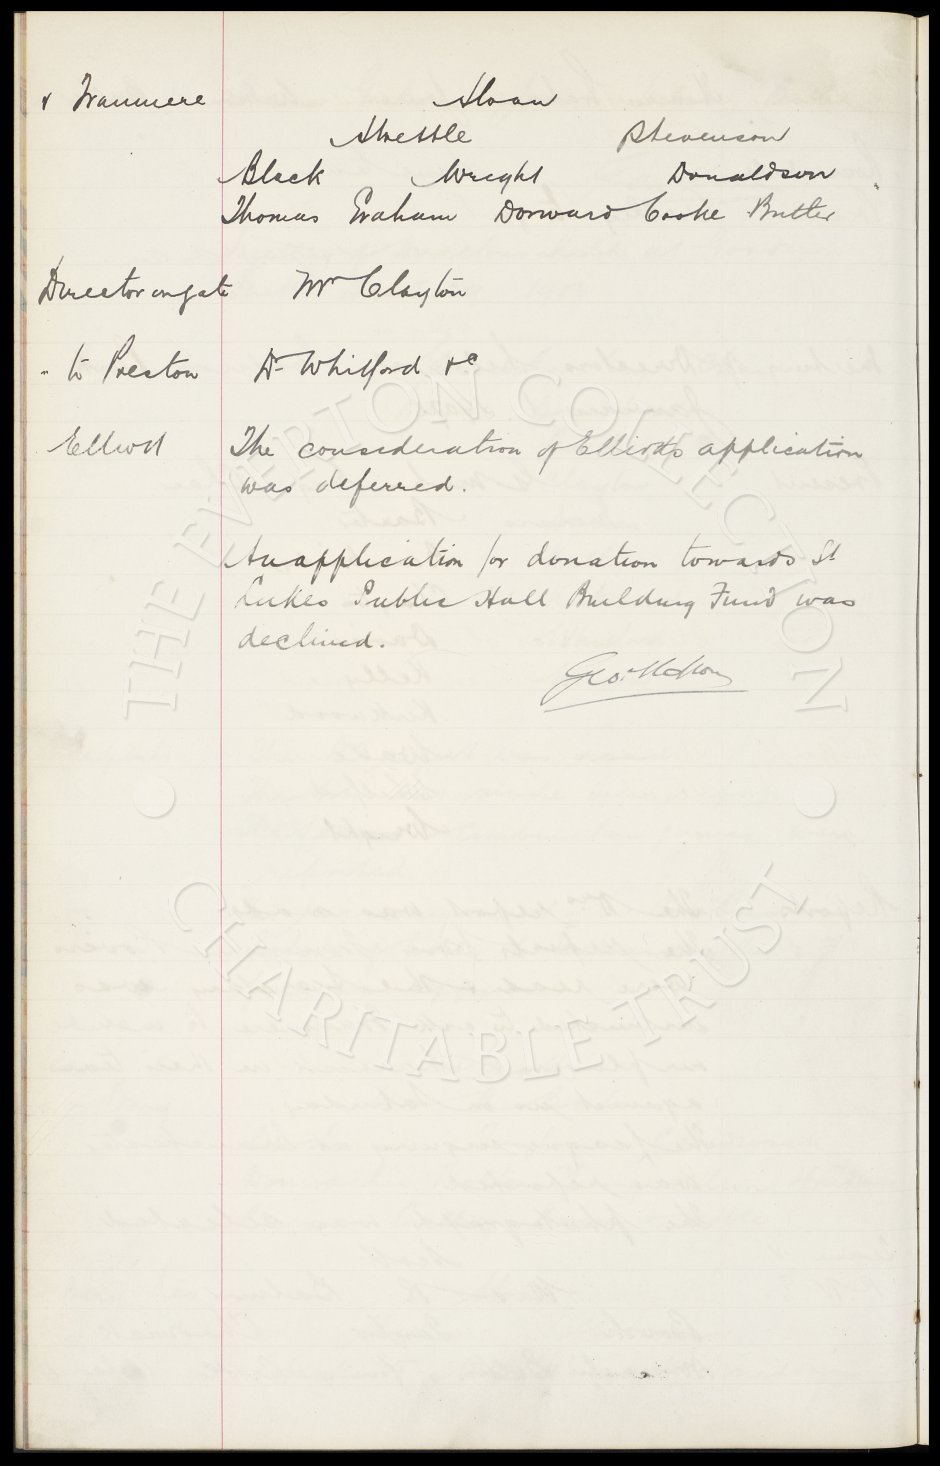 v Tranmere Sloan
Strettle Stevenson
Black Wright Donaldson
Thomas Graham Dorward Cooke Butler
Director on gate Mr Clayton
" to Preston Dr Whitford &c
Elliott The consideration of Elliotts application
was deferred.
An application for donation towards St
Lukes Public Hall Building Fund was
declined.
Geo. Mahon
THE EVERTON COLLECTION
CHARITABLE TRUST